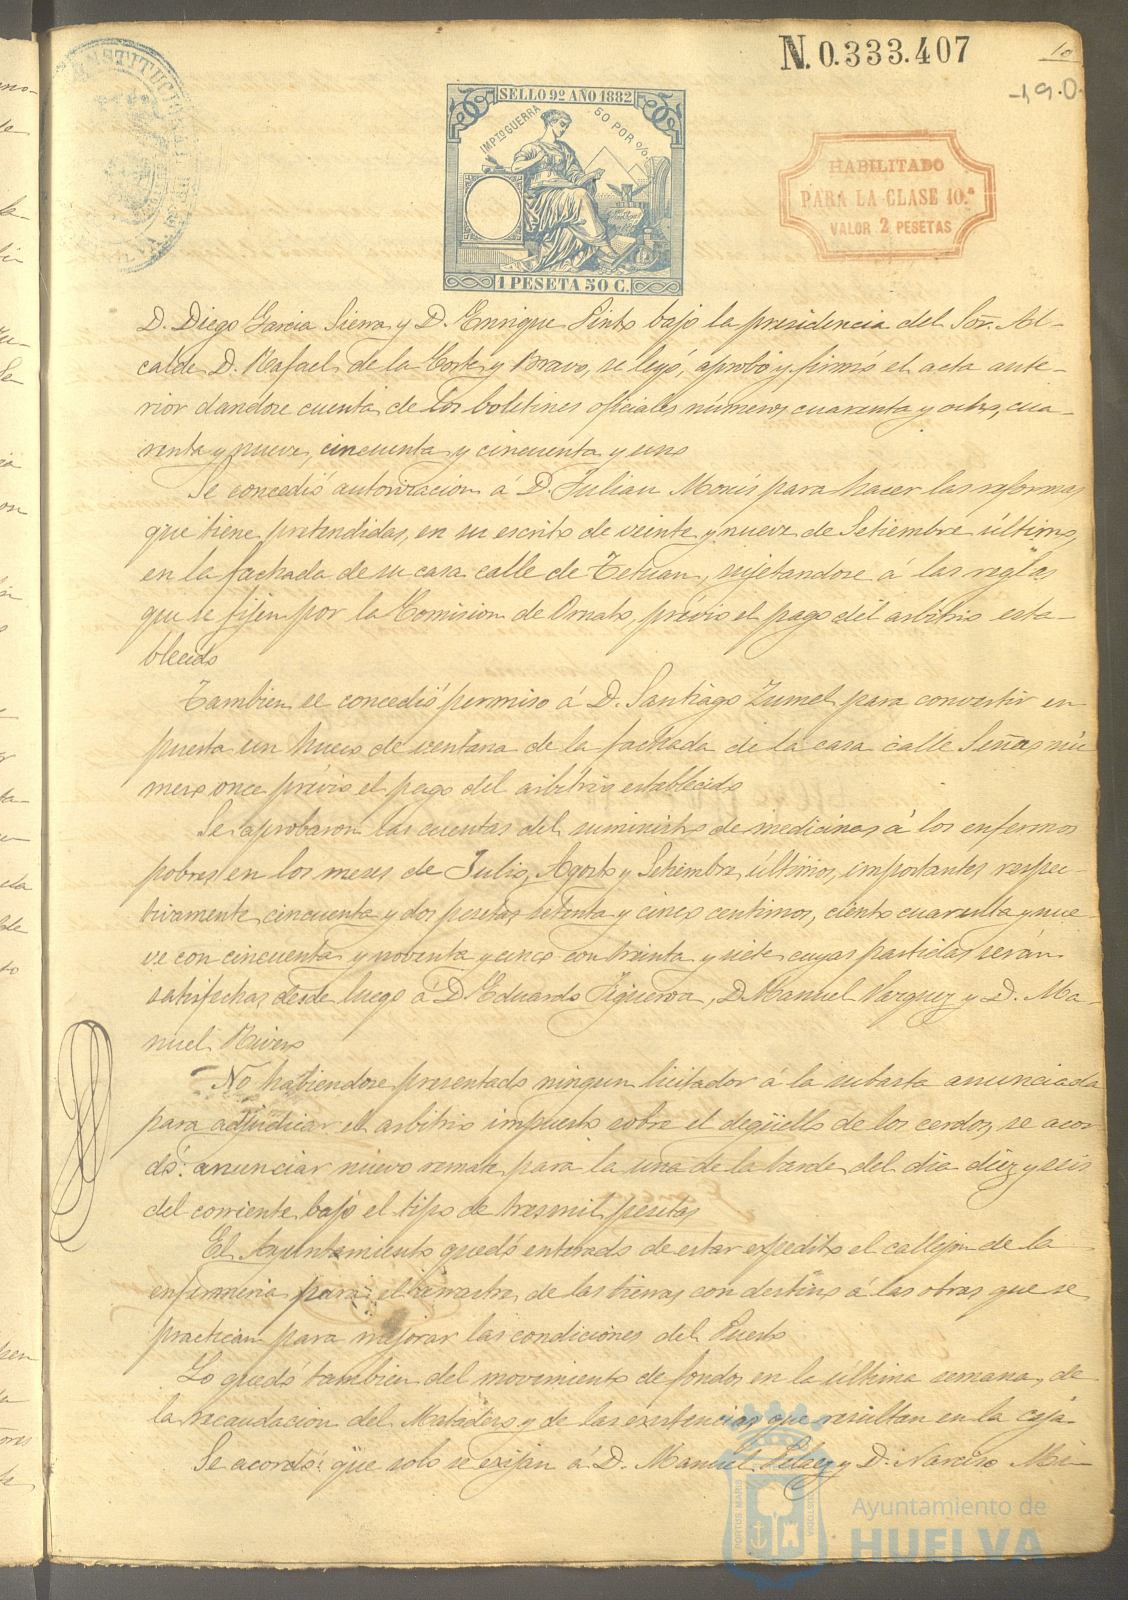 N. 0.333.407
10
190
CONSTITUCIO
SELLO 9º AÑO 1882
IMPTO GUERRA 50 POR %
1 PESETA 50 C.
HABILITADO
PARA LA CLASE 10.ª
VALOR 2 PESETAS
D. Diego Garcia Sierra y D. Enrique Pinto bajo la presidencia del Sor. Al-
calde D. Rafael de la Corte y Bravo, se leyó, aprobó y firmó el acta ante-
rior dandose cuenta de los boletines oficiales números cuarenta y ocho, cua-
renta y nueve, cincuenta y cincuenta y uno
Se concedió autorizacion á D. Julian Monis para hacer las reformas
que tiene pretendidas, en su escrito de veinte y nueve de Setiembre último,
en la fachada de su casa calle de Tetuan, sujetandose á las reglas
que se fijen por la Comision de Ornato, prévio el pago del arbitrio esta-
blecido
Tambien se concedió permiso á D. Santiago Zumel para convertir en
puerta un hueco de ventana de la fachada de la casa calle Señas nú
mero once prévio el pago del arbitrio establecido
Se aprobaron las cuentas del suministro de medicinas á los enfermos
pobres en los meses de Julio, Agosto y Setiembre últimos, importantes respec-
tivamente, cincuenta y dos pesetas setenta y cinco centimos, ciento cuarenta y nue-
ve con cincuenta y noventa y cinco con treinta y siete cuyas partidas serán
satisfechas desde luego á D. Eduardo Figueroa, D. Manuel Vazquez y D. Ma-
nuel Rivero
No habiendose presentado ningun licitador á la subasta anunciada
para adjudicar el arbitrio impuesto sobre el degüello de los cerdos, se acor
dó: anunciar nuevo remate para la una de la tarde del dia diez y seis
del corriente bajo el tipo de tresmil pesetas
El Ayuntamiento quedó enterado de estar expedito el callejon de la
enfermeria para el arrastre de las tierras con destino á las obras que se
practican para mejorar las condiciones del Puerto
Lo quedó tambien del movimiento de fondos en la última semana, de
la recaudacion del Matadero y de las existencias que resultan en la caja
Se acordó: que solo se exijan á D. Manuel Pelaez y D. Narciso Mi-
PORTUS MARIS
CUSTODIA
Ayuntamiento de
HUELVA